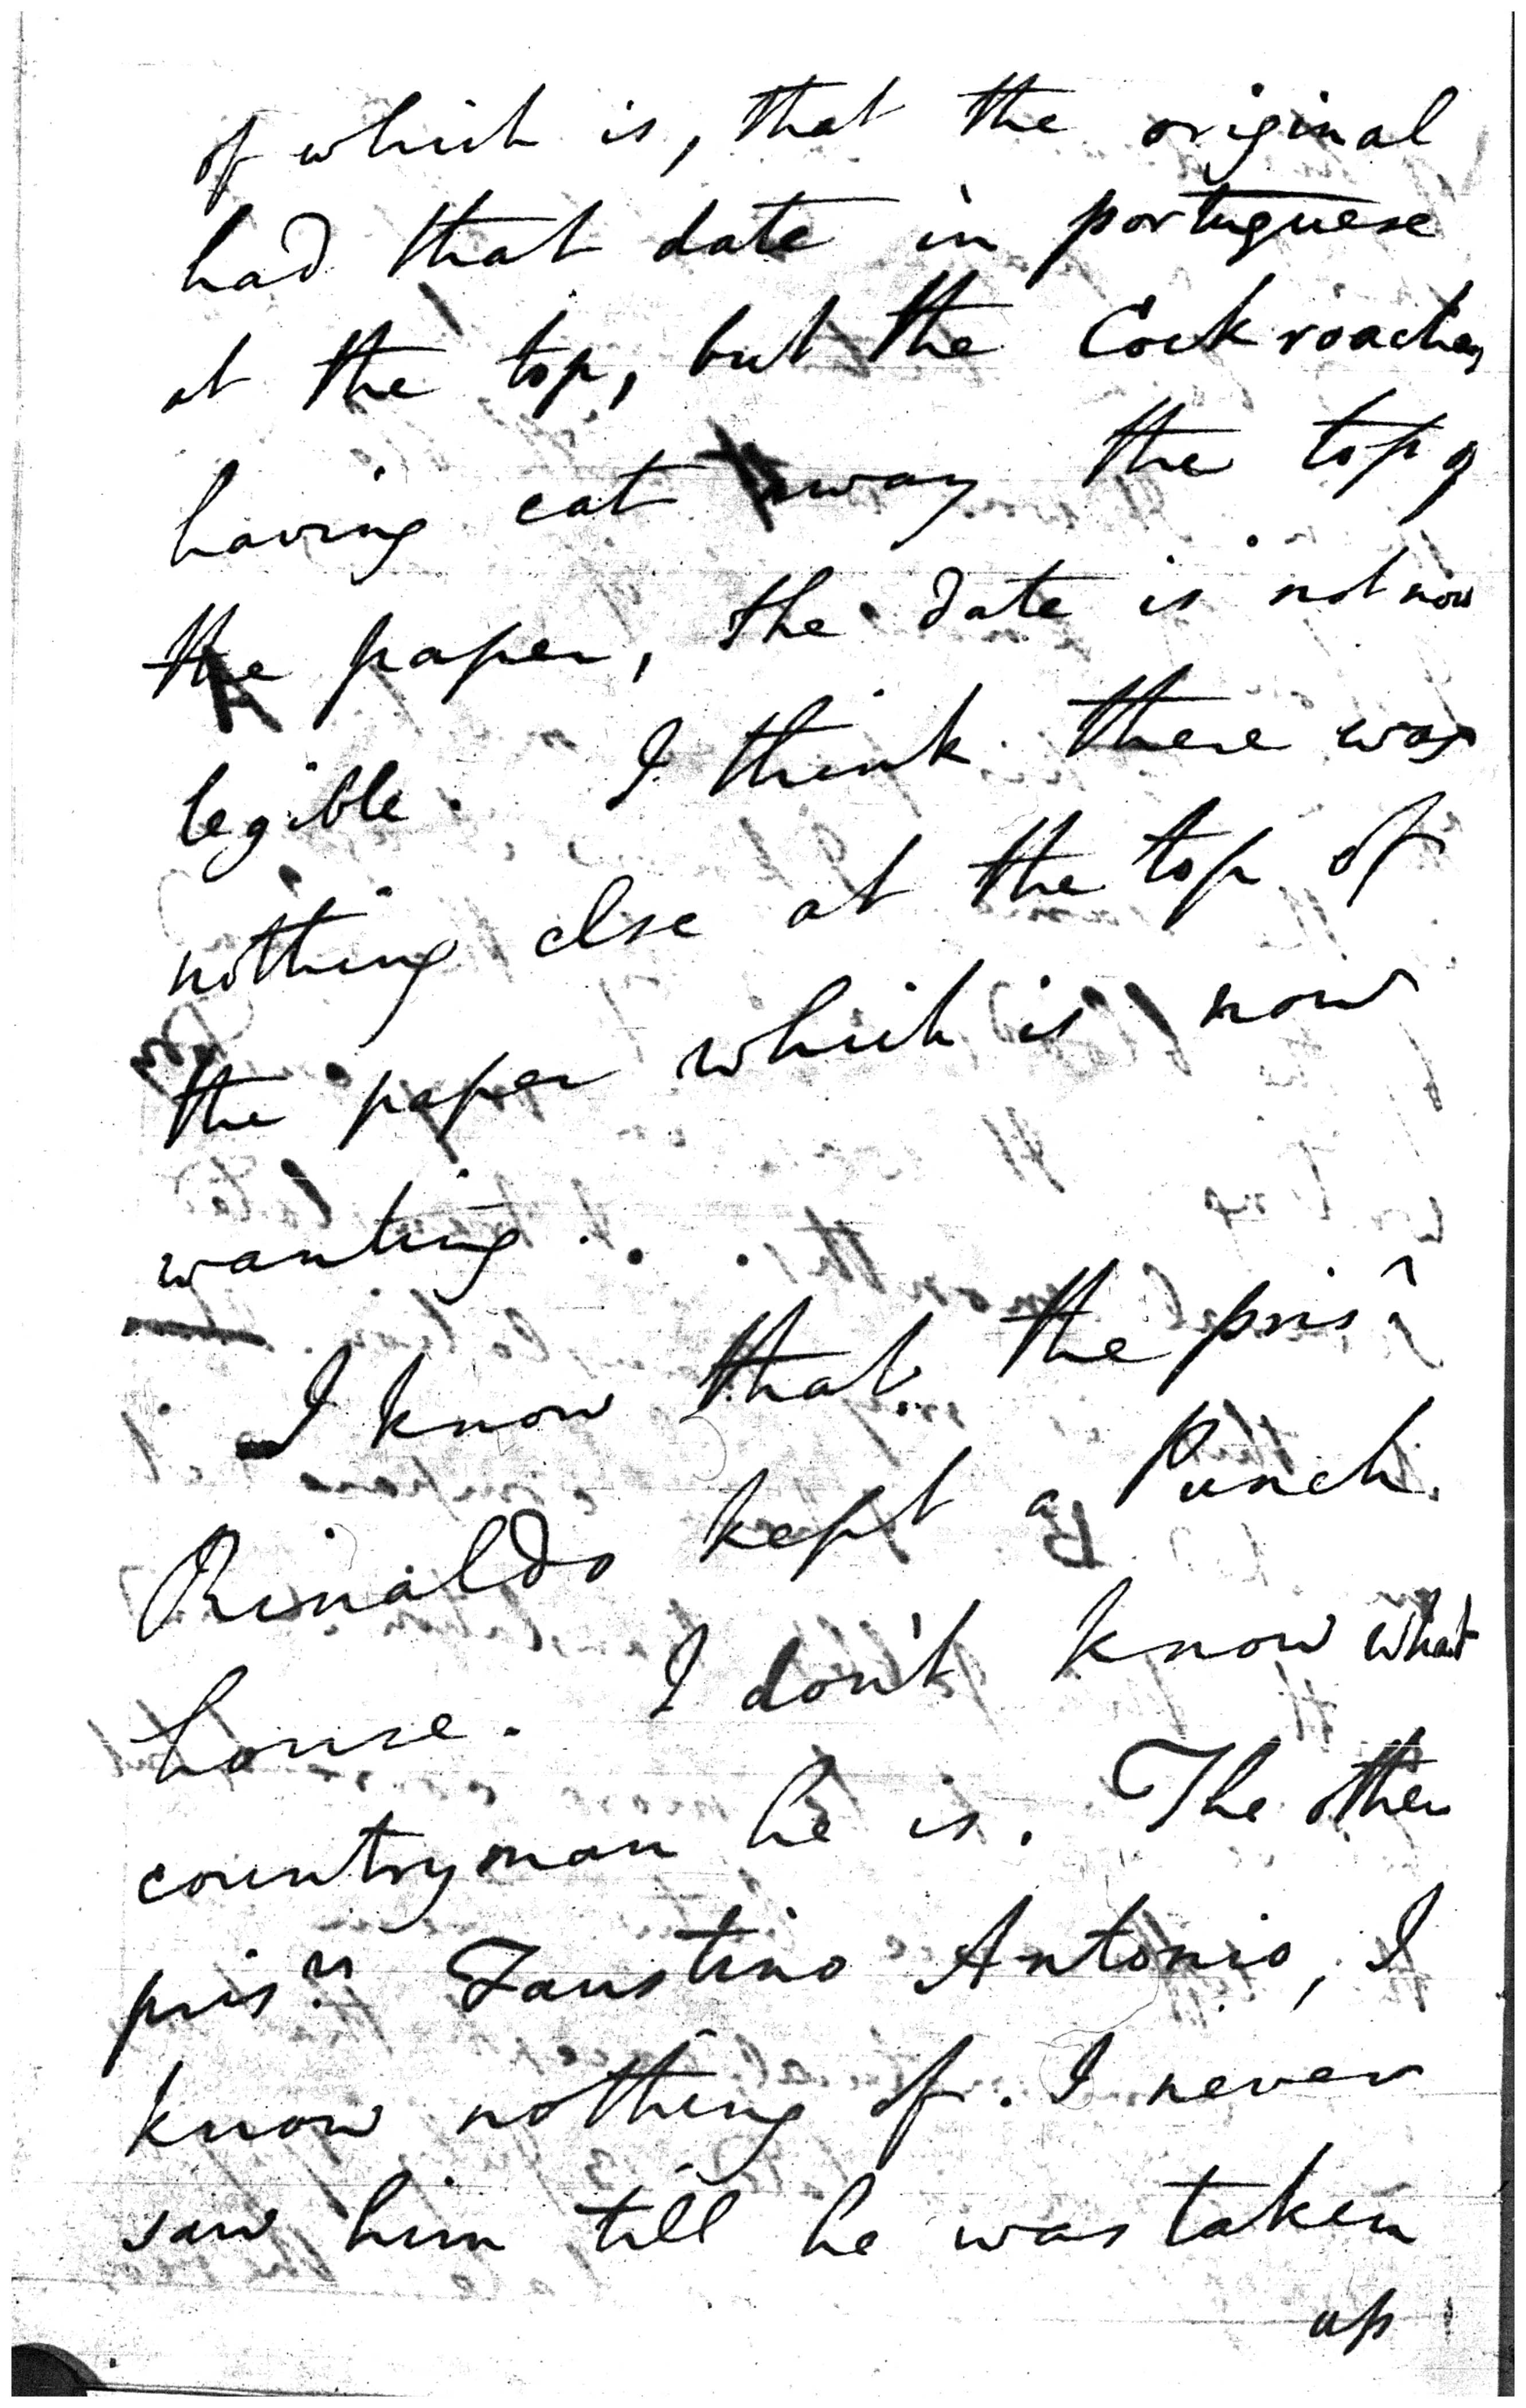 of which is, that the original
had that date in portuguese
at the top, but the Cockroaches
having eat away the top of
the paper, the date is not now
legible. I think there was
nothing else at the top of
the paper which is now
wanting.
I know that the prisr
Rinaldo kept a Punch
house. I don't know what
countryman he is. The other
prisr. Faustino Antonio, I
know nothing of. I never
saw him till he was taken
up